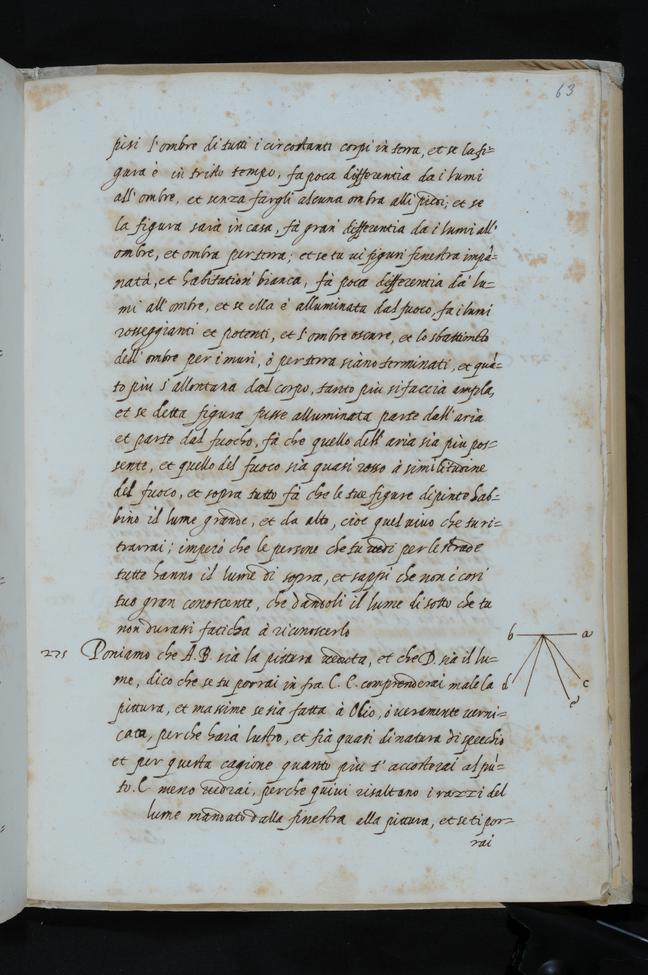 63
pisi l'ombre di tutti i circostanti corpi in terra, et se la fi=
gura è in tristo tempo, fa poca differentia da i lumi
all'ombre, et senza fargli alcuna ombra alli piedi; et se
la figura sarà in casa, fà gran differentia da i lumi all'
ombre, et ombra per terra; et se tu ui figuri finestra impā=
nata, et habitation bianca, fà poca differentia da lu=
mi all'ombre, et se ella è alluminata dal fuoco, fa i lumi
rosseggianti et potenti, et l'ombre oscure, et lo sbattimēto
dell'ombre per i muri, ò per terra siano terminati, et quā=
to piu s'allontana dal corpo, tanto piu si faccia ampla,
et se detta figura fusse alluminata parte dall'aria
et parte dal fuocho, fà che quello dell'aria sia piu pos=
sente, et quello del fuoco sia quasi rosso à similitudine
del fuoco, et sopra tutto fà che le tue figure dipinte hab=
bino il lume grande, et da alto, cioè quel uiuo che tu ri=
trarrai; imperò che le persone che tu uedi per le strade
tutte hanno il lume di sopra, et sappi che non è cosi
tuo gran conoscente, che dandoli il lume di sotto che tu
non durassi faticha à riconoscerlo
275 Poniamo che A.B. sia la pittura ueduta, et che D. sia il lu=
me, dico che se tu porrai in fra C. E. comprenderai male la
pittura, et massime se sia fatta à Olio, ò ueramente uerni=
cata, perche harà lustro, et fià quasi di natura di specchio
et per questa cagione quanto piu t'accosterai al pū=
to. C meno uedrai, perche quiui risaltano i razzi del
lume mandato dalla finestra alla pittura, et se ti por=
rai
b a
d c
e